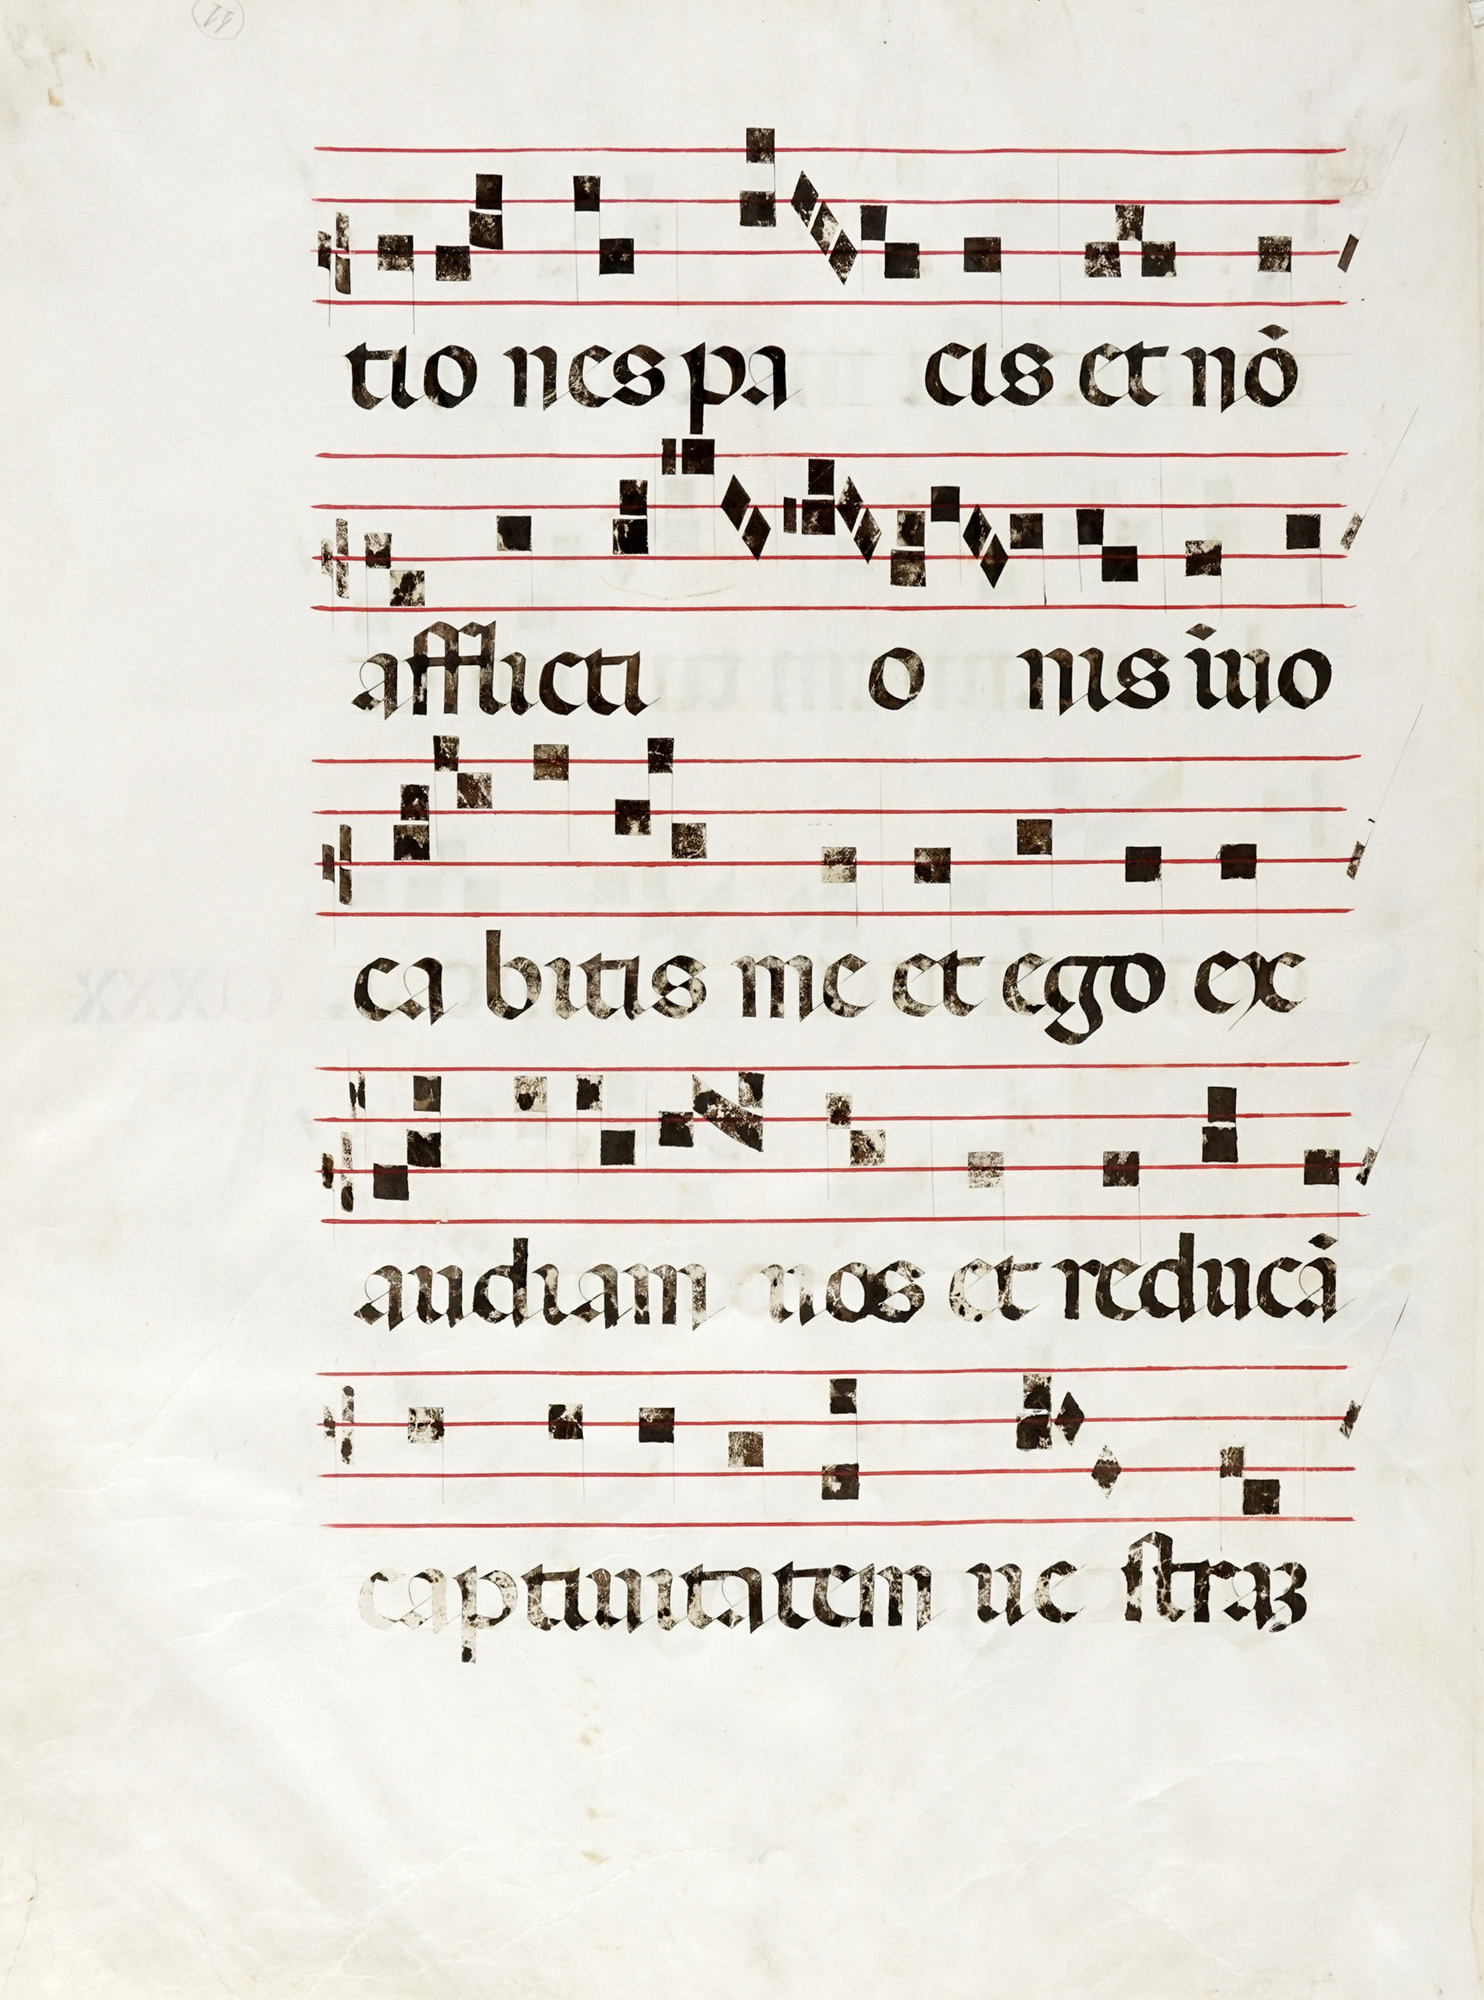 tio nes pa cis et nō
afflicti o nis iuo
ca bitis me et ego ex
audiam uos et reducā
captiuitatem ue straʒ